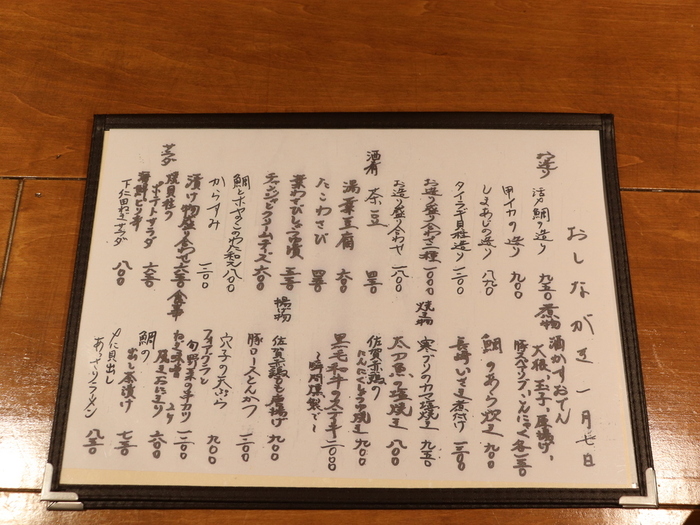 おしながき 一月七日
お造り
活〆鯛の造り 九五〇
甲イカの造り 九〇〇
しまあじの造り 八九〇
タイラギ貝柱造り 一二〇〇
お造り盛り合わせ二種 一〇〇〇
お造り盛り合わせ 一八〇〇
酒肴
茶豆 四五〇
湯葉豆腐 六〇〇
たこわさび 四五〇
葉わさびしょうゆ漬 五五〇
チャンジャクリームチーズ 六〇〇
鯛とホヤのこのわた和え 八〇〇
からすみ 一二〇〇
漬け物盛り合わせ 六五〇
サラダ
ポテトサラダ 六五〇
海鮮ピリ辛
下仁田ねぎサダ 八〇〇
煮物
酒かすおでん
大根、玉子、厚揚げ、
こんにゃく各一五〇
鯛のあら炊き 九〇〇
長崎いさき煮付け 一三〇〇
焼き物
寒ブリのカマ塩焼き 九五〇
太刀魚の塩焼き 八〇〇
佐賀赤鶏の
にんにく 九〇〇
黒毛和牛の 二〇〇〇
〜瞬間燻製で〜
揚げ物
佐賀赤鶏もも唐揚げ 九〇〇
豚ロースとんかつ 一二〇〇
穴子の天ぷら 九〇〇
フォアグラと
旬野菜の 一二〇〇
食事
ねぎ味噌
焼きおにぎり 六〇〇
鯛の
出し茶漬け 七五〇
〆に貝出し
あっさりラーメン 八五〇